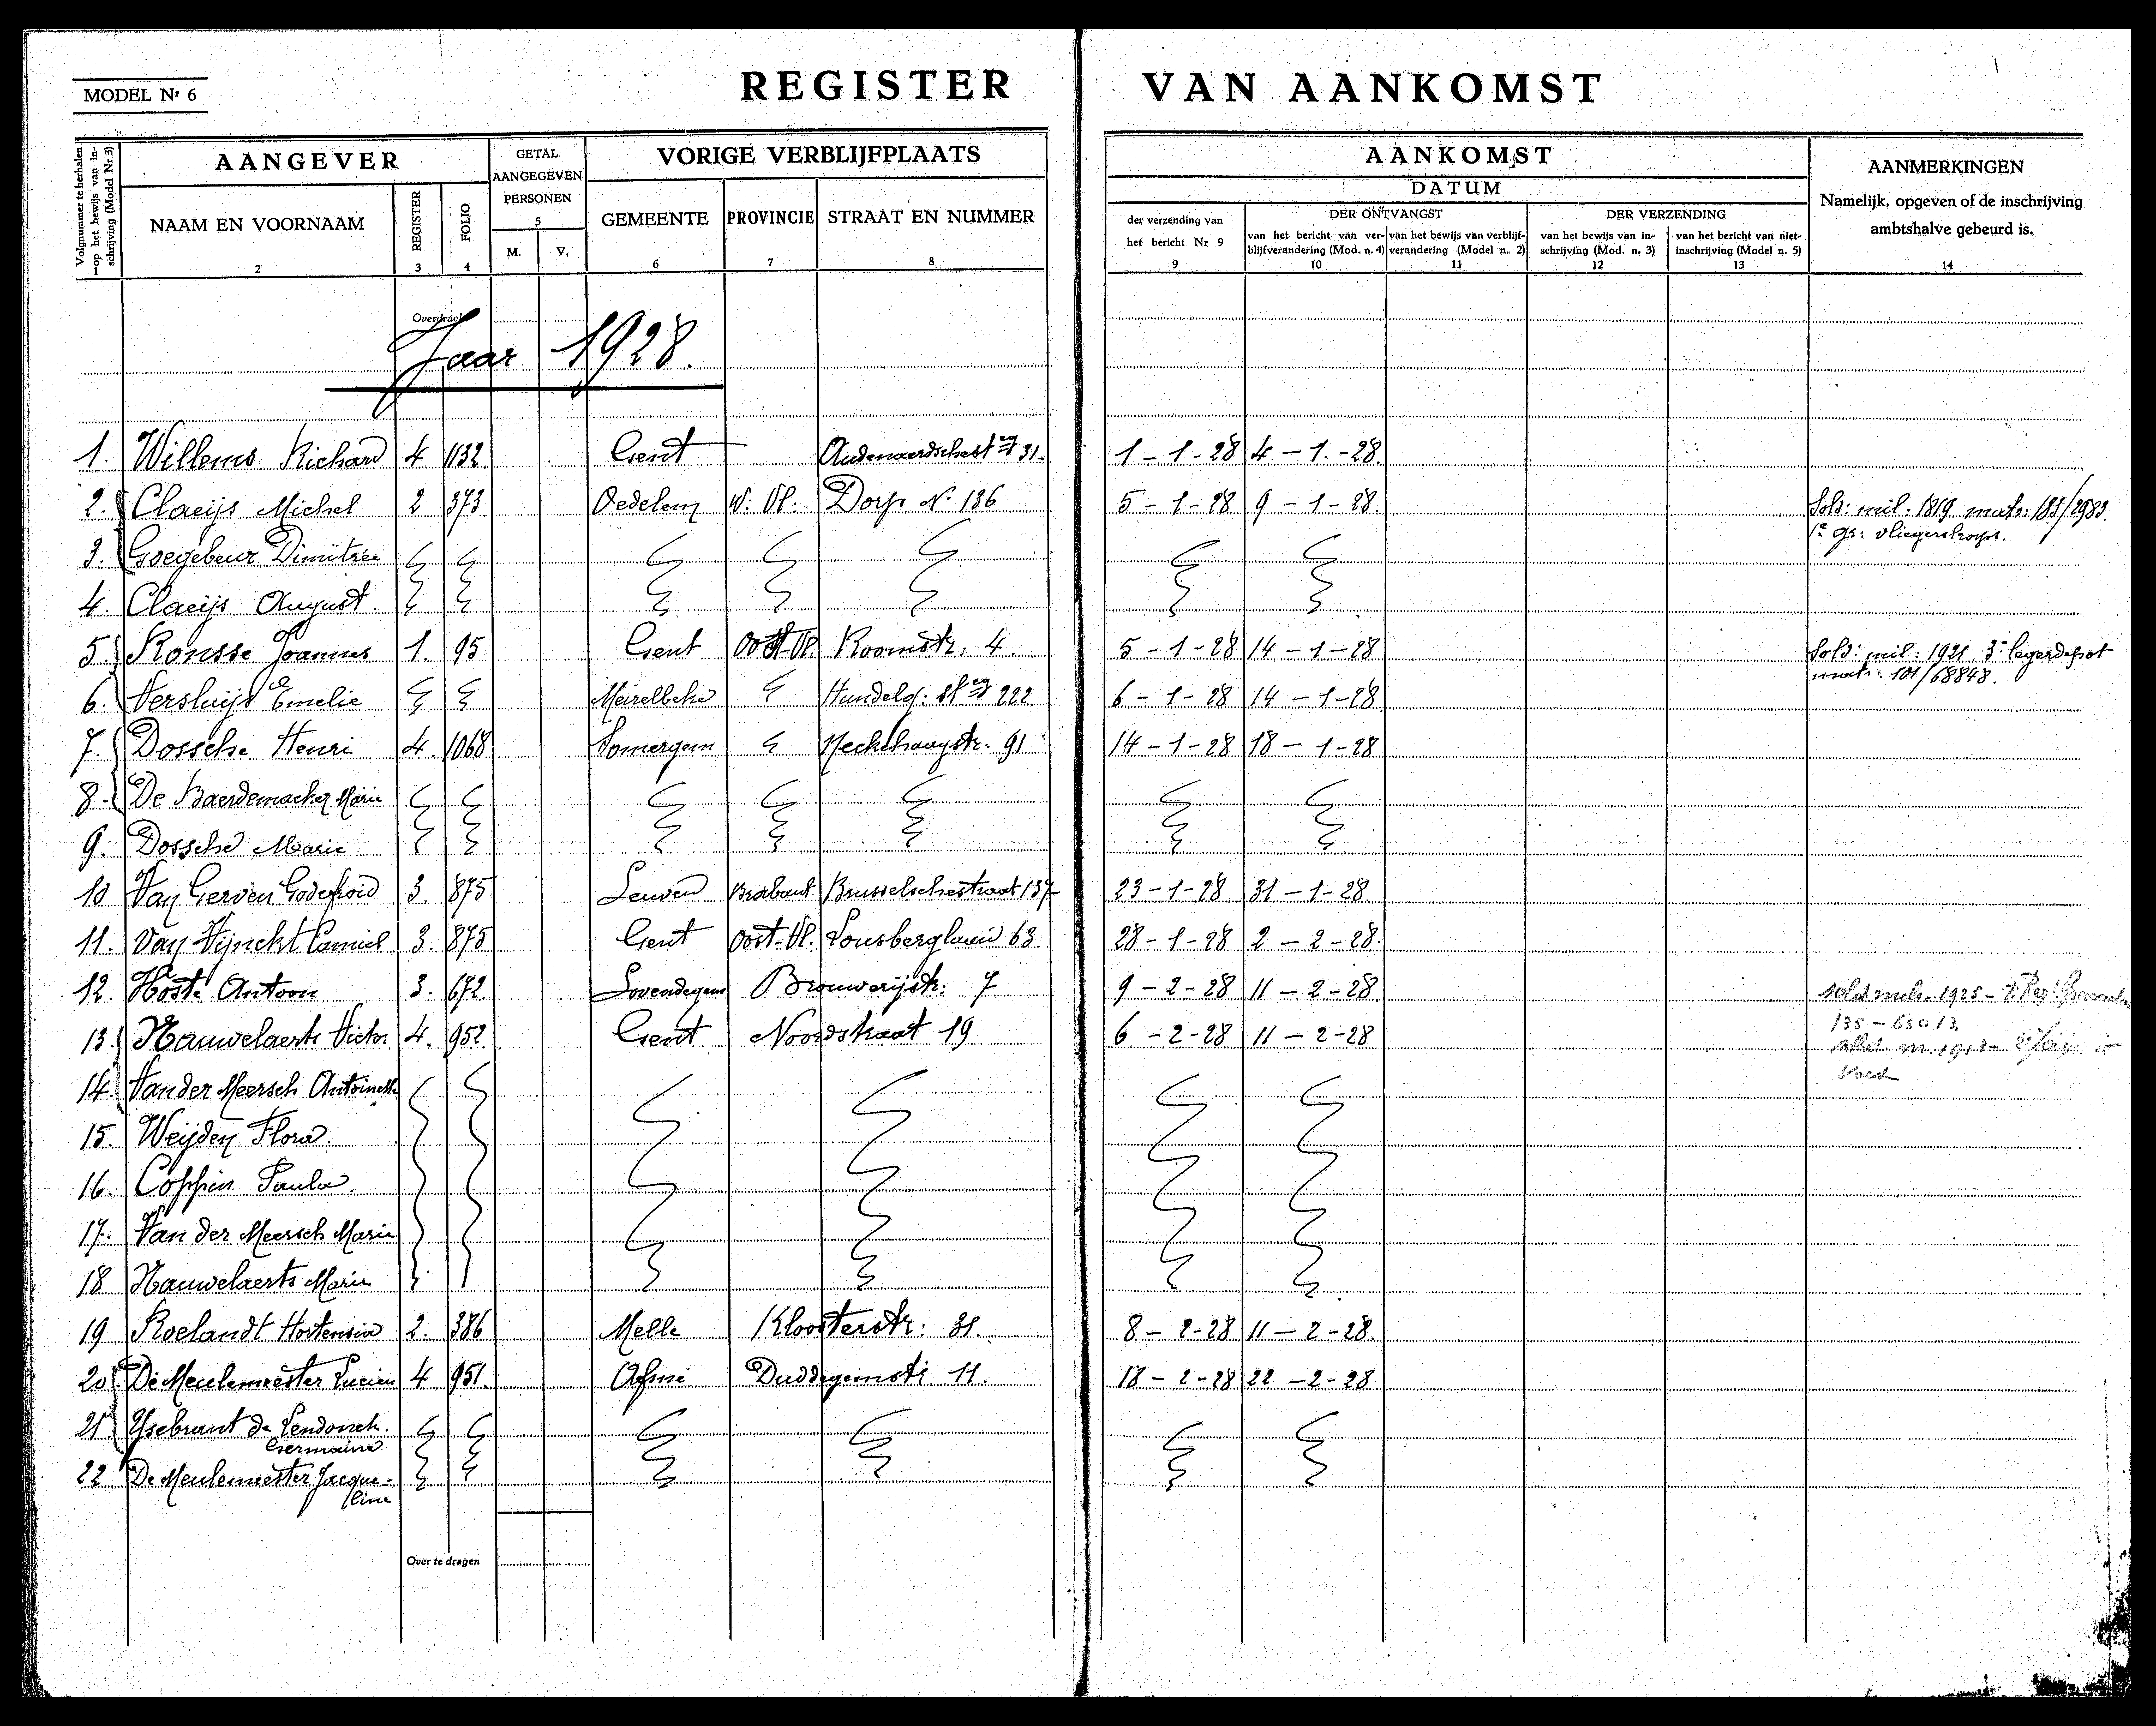 MODEL Nr 6
REGISTER VAN AANKOMST
Volgnummer te herhalen op het bewijs van inschrijving (Model Nr 3)
1
AANGEVER
NAAM EN VOORNAAM
2
REGISTER
3
FOLIO
4
GETAL
AANGEGEVEN
PERSONEN
5
M. V.
VORIGE VERBLIJFPLAATS
GEMEENTE
6
PROVINCIE
7
STRAAT EN NUMMER
8
AANKOMST
DATUM
der verzending van
het bericht Nr 9
9
DER ONTVANGST
van het bericht van ver-
blijfverandering (Mod. n. 4)
10
van het bewijs van verblijf-
verandering (Model n. 2)
11
DER VERZENDING
van het bewijs van in-
schrijving (Mod. n. 3)
12
van het bericht van niet-
inschrijving (Model n. 5)
13
AANMERKINGEN
Namelijk, opgeven of de inschrijving
ambtshalve gebeurd is.
14
Overdracht
Jaar 1928.
1. Willems Richard 4 1132 Gent Audenaerdschestwg 31. 1-1-28 4-1.-28.
2. Claeijs Michel 2 373 Oedelem W: Vl: Dorp No 136 5-1-28 9-1-28. Sold: mil: 1819 matr: 183/2983.
1e gr: vliegerskorps.
3. Goegebeur Dimitrie
4. Claeijs August.
5. Ronsse Joannes 1. 95 Gent Oost-Vl. Roomstr: 4. 5-1-28 14-1-28 Sold: mil: 1921 3e legerdepot
matr: 101/68848.
6. Versluijs Emelie Meirelbeke Hundelg: stwg 222 6-1-28 14-1-28
7. Dossche Henri 4. 1068 Somergem 91 14-1-28 18-1-28
8. De Baerdemaeker Marie
9. Dossche Marie
10 Van Gerven Godefroid 3. 875 Leuven Brabant Brusselschestraat 137 23-1-28 31-1-28.
11. Van Wijnckt Camiel 3. 875 Gent Oost-Vl. Lousberglaan 63. 28-1-28 2-2-28.
12. Hoste Antoon 3. 672. Lovendegem Brouwerijstr: 7 9-2-28 11-2-28 1925
135-65013
13. Nauwelaerts Victor 4. 952. Gent Noordstraat 19 6-2-28 11-2-28
14. Van der Meersch Antoinette
15. Weijden Flora.
16. Coppin Paula.
17. Van der Meersch Marie
18 Nauwelaerts Marie
19 Roelandt Hortensia 2. 386 Melle Kloosterstr: 31. 8-2-28 11-2-28.
20 De Meulemeester Lucien 4 951. Afsné Duddegemstr 11. 18-2-28 22-2-28
21 Ysebrant de Lendonck.
Germaine
22 De Meulemeester Jacque-
line
Over te dragen